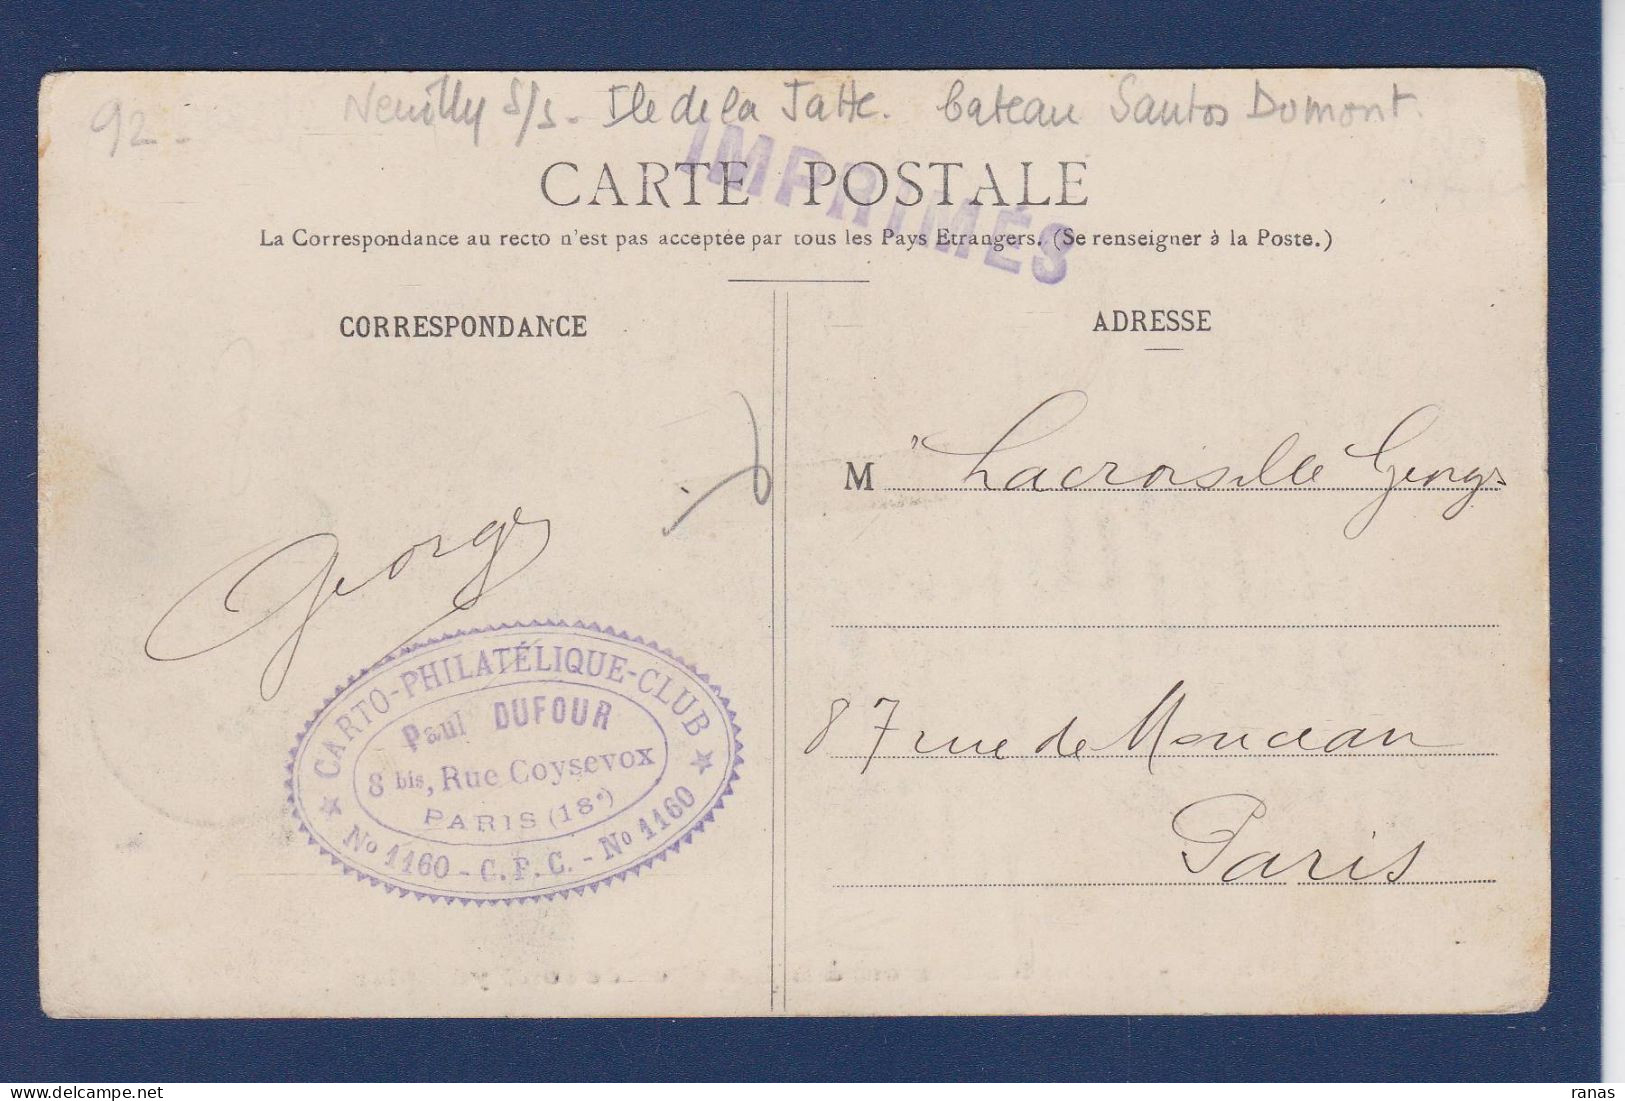 92 -
Neuilly S/S - Ile de la Jatte. bateau Santos Dumont.
IMPRIMÉS
CARTE POSTALE
La Correspondance au recto n'est pas acceptée par tous les Pays Etrangers. (Se renseigner à la Poste.)
CORRESPONDANCE
ADRESSE
M Lacroisille Georges
Georges
87 rue de Monceau
Paris
CARTO-PHILATÉLIQUE-CLUB
Paul DUFOUR
8 bis, Rue Coysevox
PARIS (18e)
No 1160 - C. P. C. - No 1160
ranas